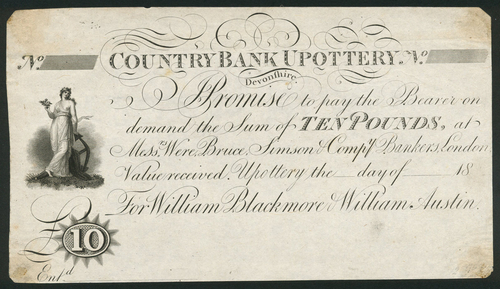 No COUNTRY BANK UPOTTERY. No
Devonshire.
I Promise to pay the Bearer on
demand the Sum of TEN POUNDS, at
Messrs Were, Bruce, Simson & Compy Bankers London
Value received, Upottery the day of 18
For William Blackmore & William Austin.
£ 10
Entd